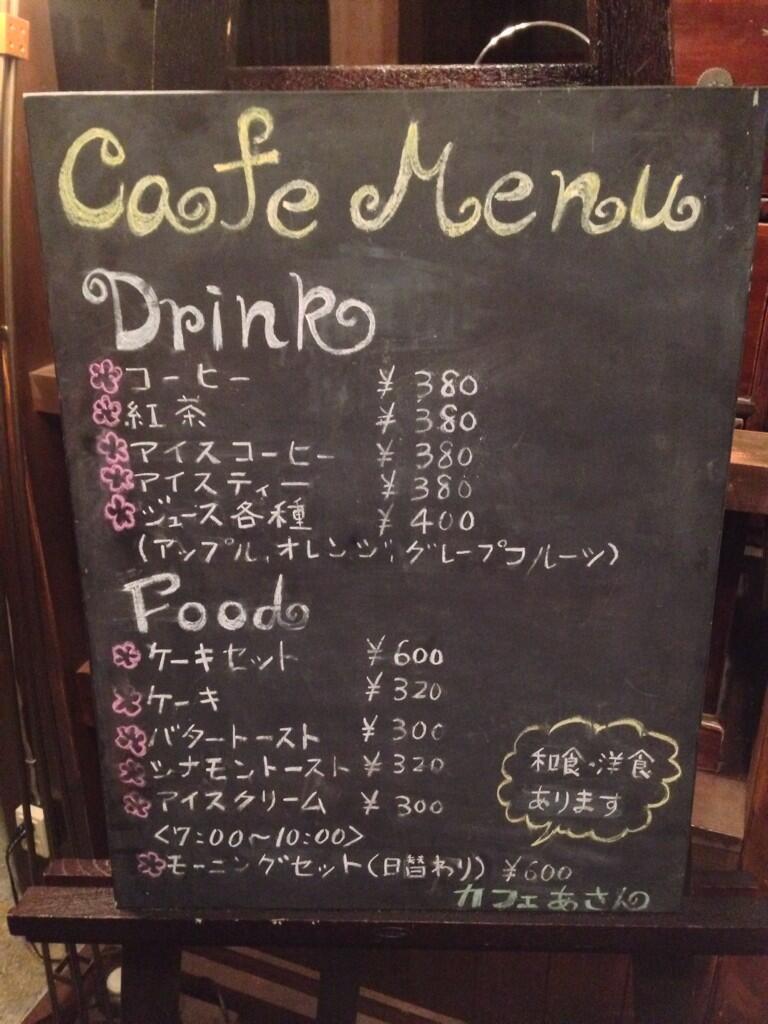 Cafe Menu
Drink
コーヒー ¥380
紅茶 ¥380
アイスコーヒー ¥380
アイスティー ¥380
ジュース各種 ¥400
(アップル、オレンジ、グレープフルーツ)
Food
ケーキセット ¥600
ケーキ ¥320
バタートースト ¥300
シナモントースト ¥320
アイスクリーム ¥300
<7:00〜10:00>
モーニングセット(日替わり) ¥600
和食・洋食
あります
カフェあさん